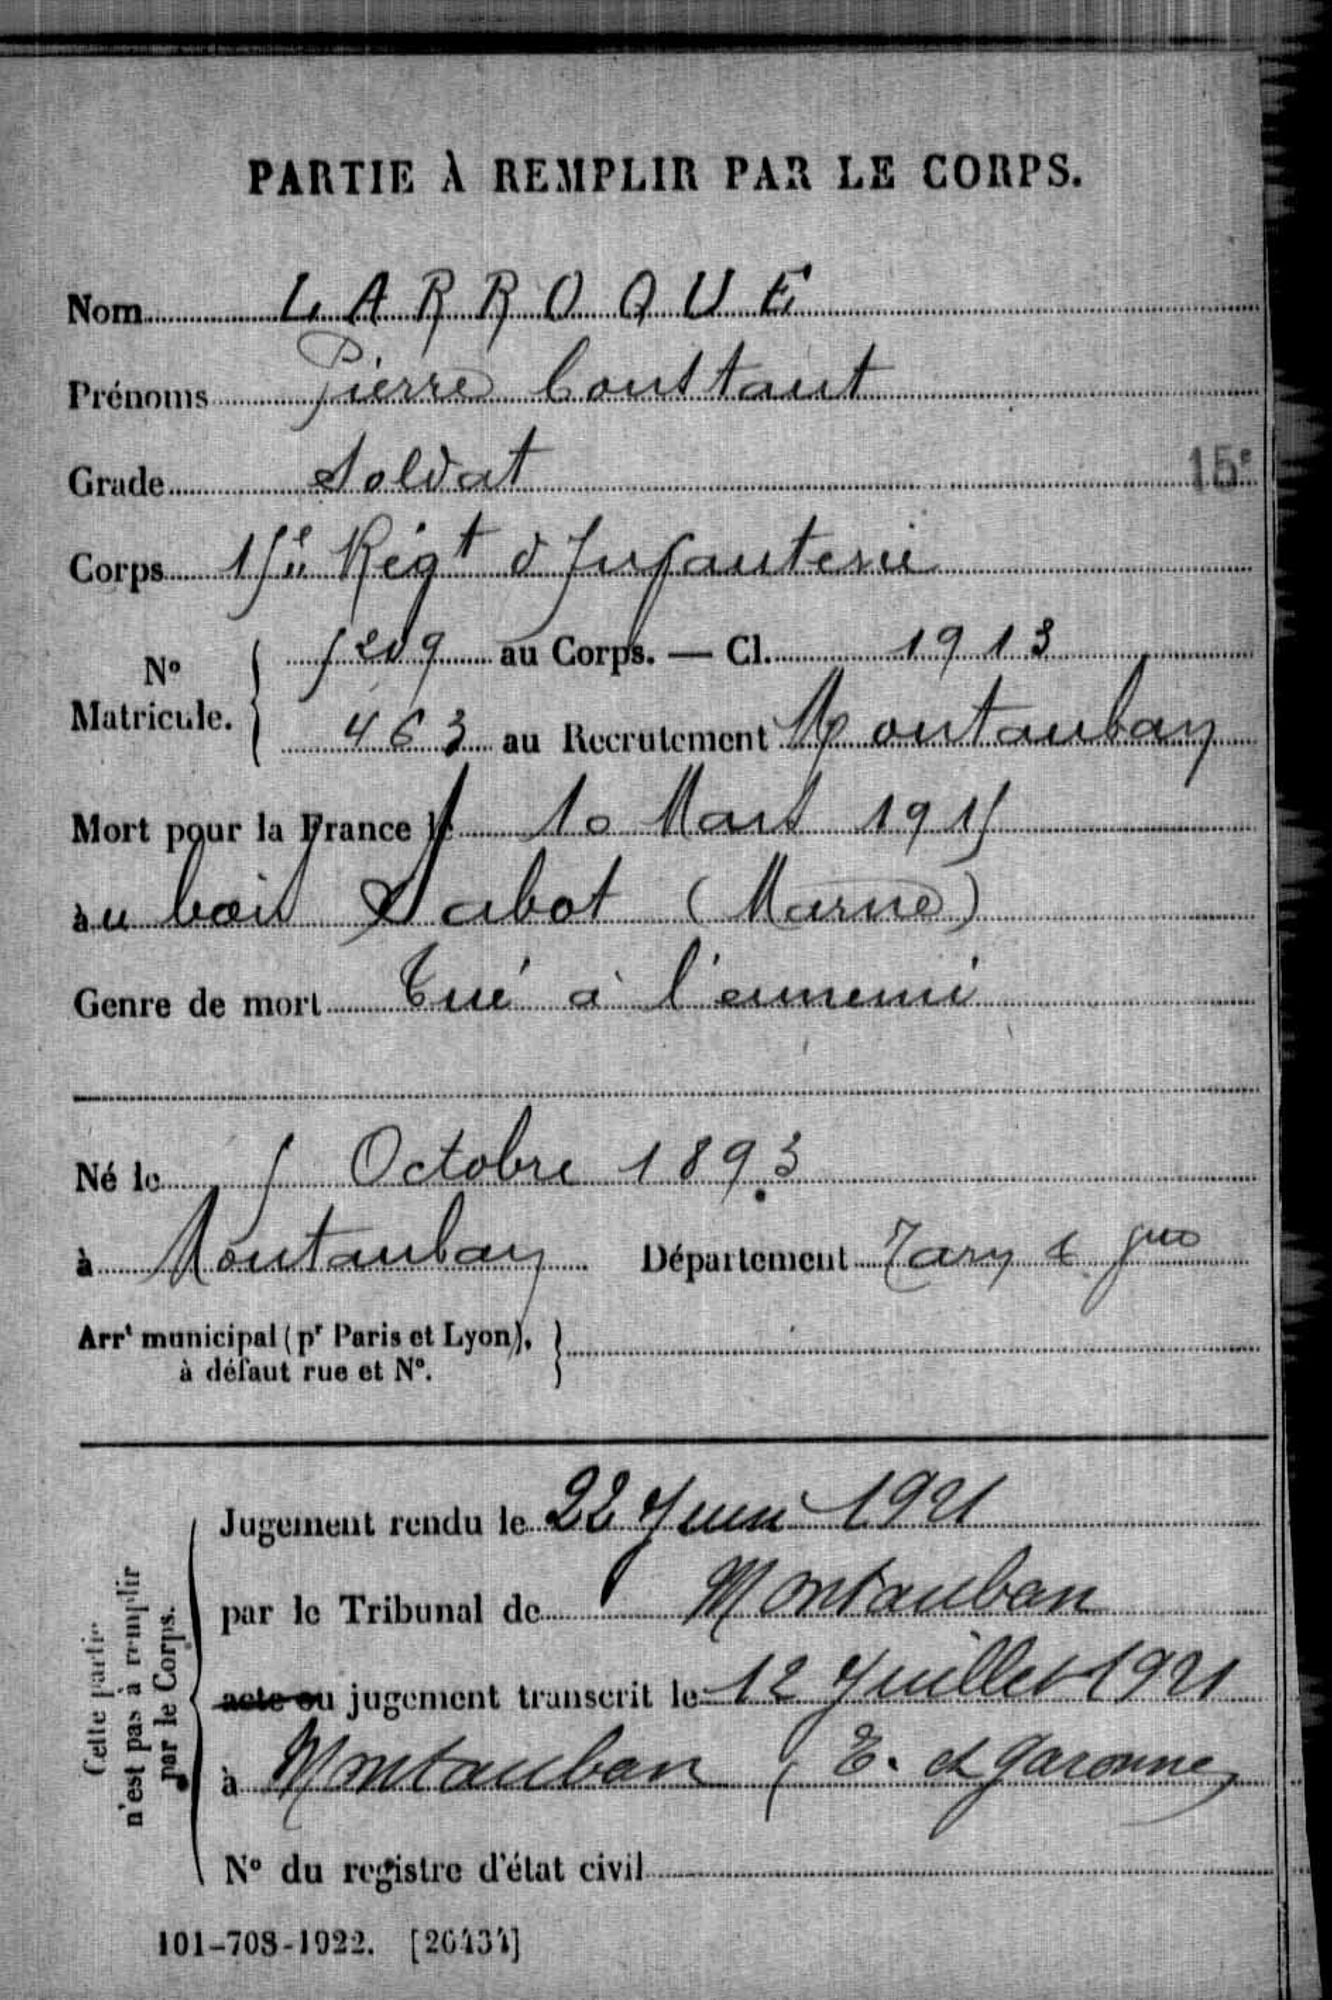 PARTIE À REMPLIR PAR LE CORPS.
Nom LARROQUE
Prénoms Pierre Constant
Grade Soldat
15e
Corps 15e Régt d'Infanterie
No Matricule. 5209 au Corps. — Cl. 1913
463 au Recrutement Montauban
Mort pour la France le 10 Mars 1915
au bois Sabot (Marne)
Genre de mort Tué à l'ennemi
Né le 5 Octobre 1893
à Montauban Département Tarn & Gne
Arrt municipal (pr Paris et Lyon),
à défaut rue et No.
Cette partie
n'est pas à remplir
par le Corps.
Jugement rendu le 22 Juin 1921
par le Tribunal de Montauban
acte ou jugement transcrit le 12 Juillet 1921
à Montauban (T. et Garonne)
No du registre d'état civil
101-708-1922. [26434]